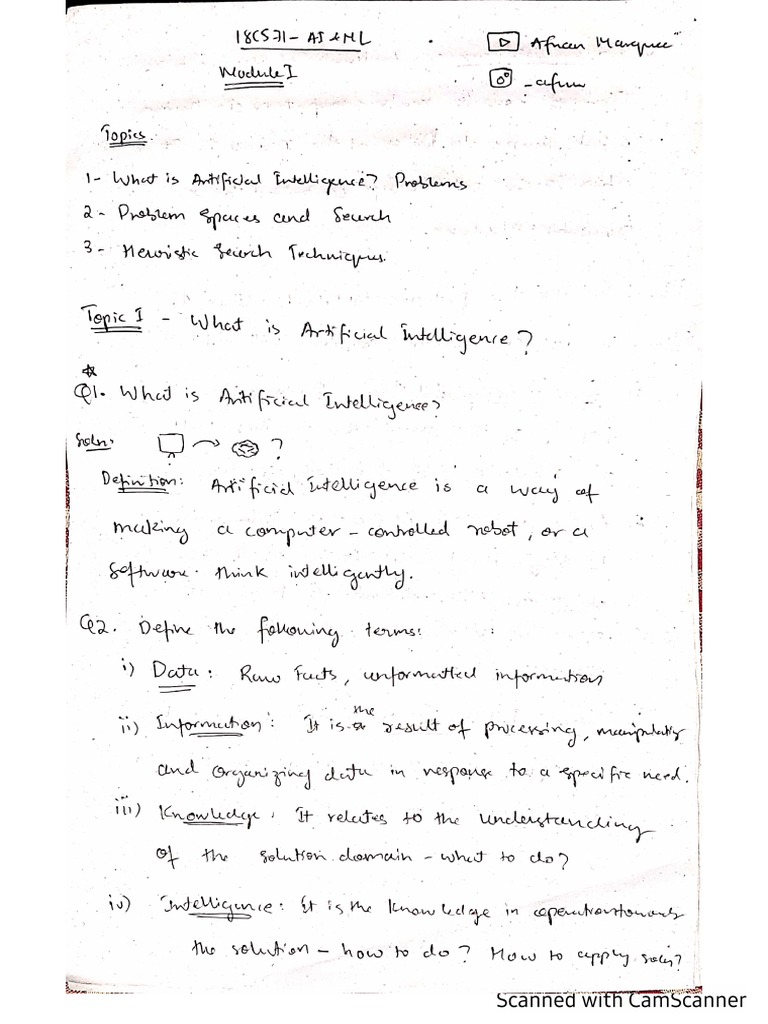 18CS71 - AI & ML
Afnan Marquee
Module I
Topics
1- What is Artificial Intelligence? Problems
2- Problem Spaces and Search
3- Heuristic Search Techniques.
Topic I - What is Artificial Intelligence?
Q1. What is Artificial Intelligence?
Soln:
?
Definition: Artificial Intelligence is a way of
making a computer-controlled robot, or a
software think intelligently.
Q2. Define the following terms:
i) Data: Raw Facts, unformatted information
ii) Information: It is the result of processing, manipulating
and organizing data in response to a specific need.
iii) Knowledge: It relates to the understanding
of the solution domain - what to do?
iv) Intelligence: It is the knowledge in operation towards
the solution - how to do? How to apply soln?
Scanned with CamScanner